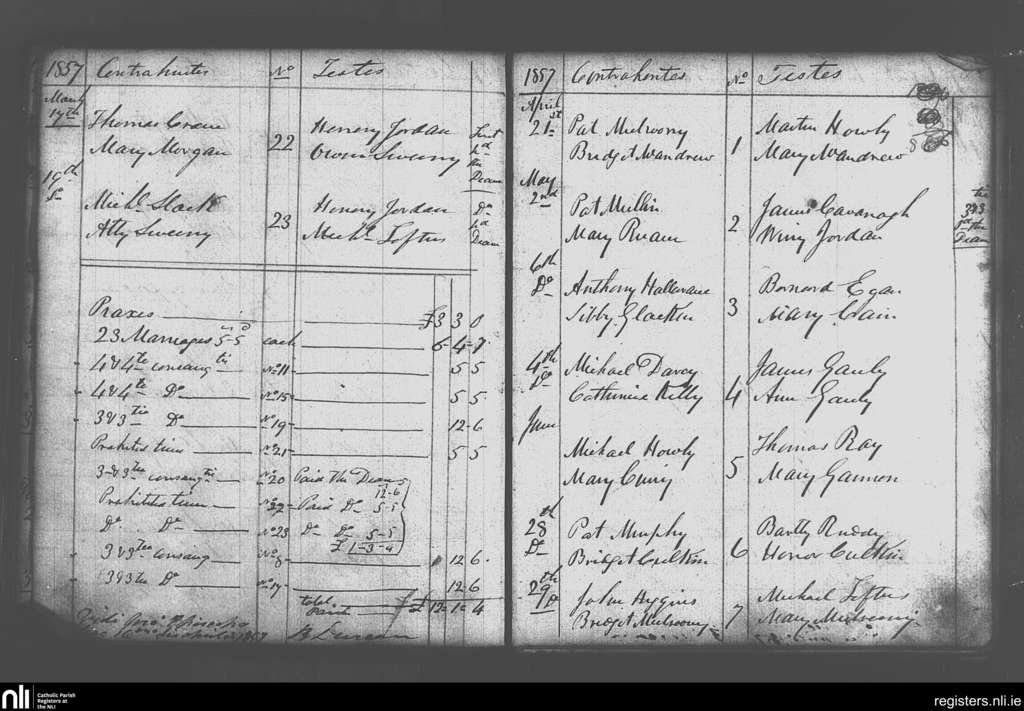 1857 Contrahentes No Testes
March
17th Thomas Crean 22 Henery Jordan
Mary Morgan Owen Sweeny
the
Dean
19th
Do Michl. Slack 23 Henery Jordan Do
Atty Sweeny Michl. Loftus Dean
Praxes £3 3 0
23 Marriages 5-5 each 6-4-7
4&4te consang No 11 5 5
4&4te Do No 15 5 5
3&3tio Do No 19 12-6
Prohibited time No 21 5 5
3&3tee consang No 20 Paid the Dean 12-6
Prohibited time No 22 Paid Do 5-5
Do Do No 23 Do Do 5-5
£ 1-3-4
3&3tee consang No 8 12 6
3&3tee Do No 17 12-6
total £ 12-1-4
1857 Contrahentes No Testes
April
21st Pat Mulroony 1 Martin Howly
Bridget McAndrew Mary McAndrew
May
2nd Pat Mullin 2 James Cavanagh
Mary Ruane Winy Jordan
3&3
the
Dean
6th
Do Anthony Hallarane 3 Bernard Egan
Sibby Glacken Mary Cain
4th Michael Davey James Gauly
Do Catherine Kelly 4 Ann Gauly
June
Michael Howly 5 Thomas Ray
Mary Curry Mary Gannon
28th Pat Murphy Bartly Ruddy
Do Bridget Culkin 6 Honor Culkin
29th John Higgins Michael Loftus
Do Bridget Mulroony 7 Mary Mulroony
nli Catholic Parish
Registers at
the NLI
registers.nli.ie